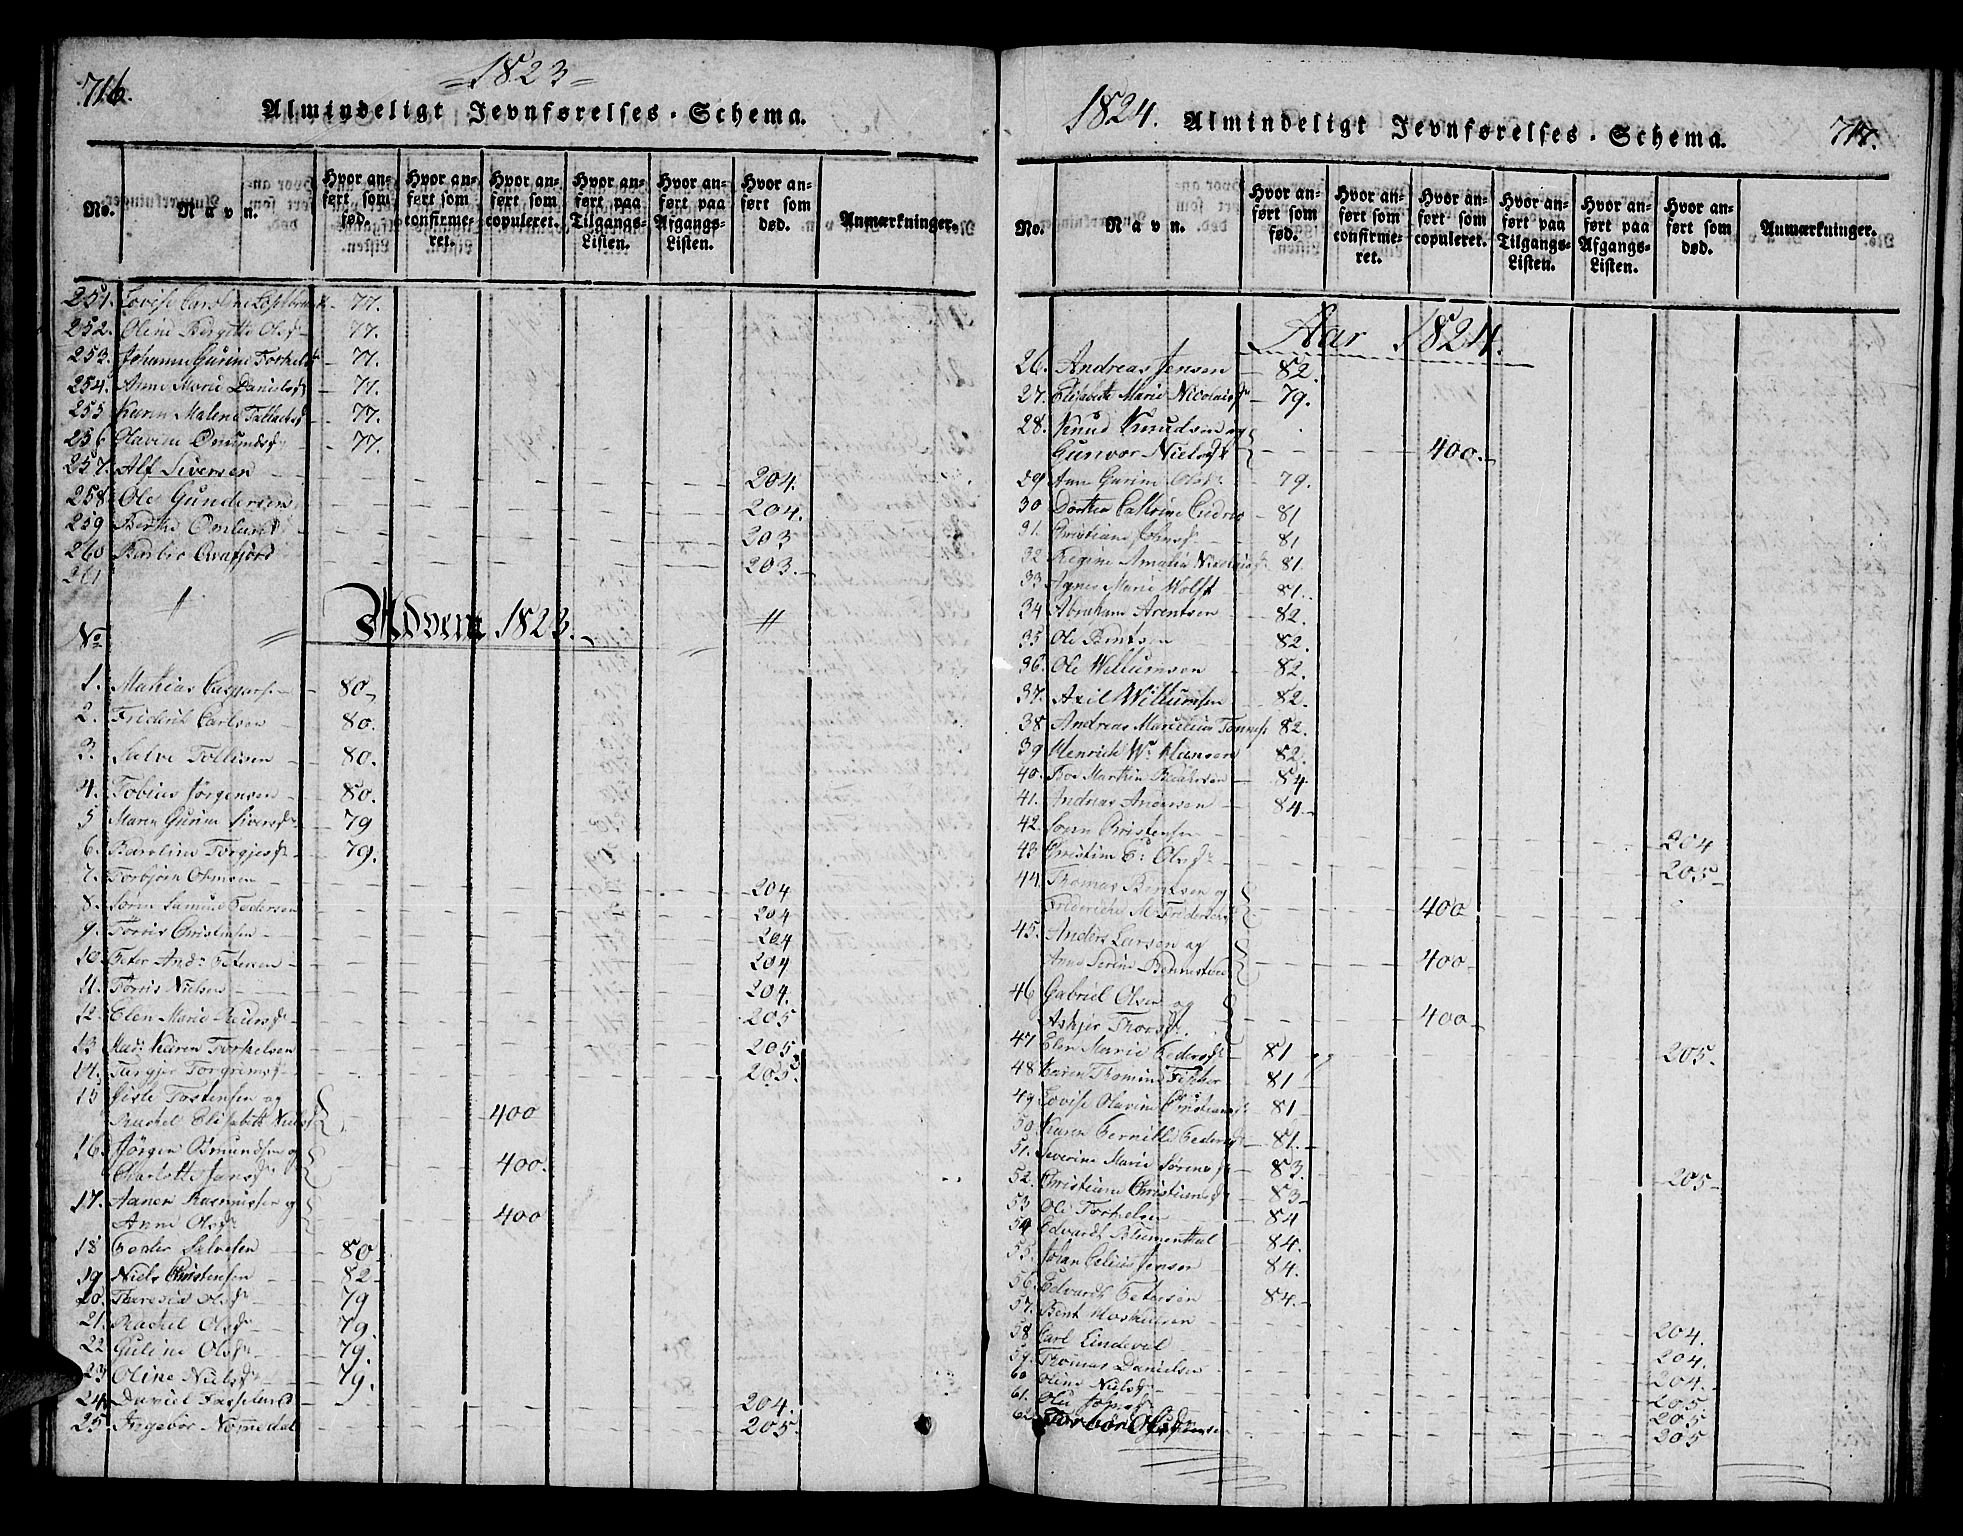 716.
=1823=
Almindeligt Jevnførelses-Schema.
No. Navn. Hvor anført som fød. Hvor anført som confirmeret. Hvor anført som copuleret. Hvor anført paa Tilgangs-Listen. Hvor anført paa Afgangs-Listen. Hvor anført som død. Anmærkninger.
251. Lovise Caroline 77.
252. Oline Bergitte Olsd 77.
253. Johanne Gurine Torkelsd 77.
254. Anne Marie Danielsd 77.
255 Karen Malene Tallaksd 77.
256 Olavine Omundsd 77.
257. Alf Siversen 204.
258 Ole Gundersen 204.
259 Berthe Omlund 203
260 Barbro Qvafjord 203.
261
Advent 1823.
No
1. Mathias Caspars. 80
2. Friderik Carlsen 80.
3. Salve Tollisen 80.
4. Tobias Jørgensen 80.
5 Maren Gurine Siversdr 79
6. Karoline Torgjersdr 79.
7. Torbjørn Olsen 204
8. Søren Samuel Pedersen 204
9. Torris Christensen 204
10. Peter Andr Petersen 204
11. Torris Nielsen 204.
12. Elen Marie Pedersdr 205
13 Mad: Karen Torkelsen 205
14. Torgjer Torgrimsdr 205
15 Gisle Torstensen og
Rachel Elisabeth Nielsd 400
16. Jørgen Omundsen og
Charlotte Jansdr 400.
17. Aanen Rasmussen og
Anne Olsdr 400
18 Peder Salvesen 80
19. Niels Christensen 82
20. Theresia Olsdr 79
21. Rachel Olsdr 79.
22 Guline Olsdr 79.
23 Oline Nielsdr 79.
24. Daniel Fasseland 204.
25. Ingebor Nommedal 205
1824.
Almindeligt Jevnførelses-Schema.
717.
No. Navn. Hvor anført som fød. Hvor anført som confirmeret. Hvor anført som copuleret. Hvor anført paa Tilgangs-Listen. Hvor anført paa Afgangs-Listen. Hvor anført som død. Anmærkninger.
Aar 1824.
26. Andreas Jensen 82.
27. Elisabeth Marie Nicolaisdr 79.
28. Knud Knudsen og
Gunvor Nielsdr 400.
29 Ane Gurine Olsdr 79.
30 Dorthea Cathrine 81
31. Christiane Johnsdr 81
32 Regine Amalia Nicolaisdr 81.
33 Agnes Marie Wolft 81.
34 Abraham Arentsen 82.
35 Ole Berntsen 82.
36. Ole Willumsen 82.
37. Axel Willumsen 82.
38 Andreas Marcelius Tønnes 82.
39 Henrich Wm Hansen 82.
40. Boe Marthin 84
41. Andreas Andersen 84.
42. Søren Christensen 204
43 Christine Olsdr 205
44. Thomas Berntsen og
Frideriche M Fridersen 400
45. Anders Larsen og
Anne Serine 400
46 Gabriel Olsen og
Askjer Thorsdr. 400
47 Elen Marie Pedersdr 81 205.
48 Karen Thomine 81
49 Lovise Olavine Christiansdr 81
50. Karen Pernille Pedersdr 81.
51. Severine Marie Sørensdr 83.
52. Christiane Christiansdr 83 205
53 Ole Torkelsen 84
54 Edvardt Blumenthal 84.
55. Johan Celius Jensen 84.
56. Edvardt Petersen 84.
57. Bent 204.
58 Carl Lindevol 204.
59. Thomas Danielsen 204.
60 Oline Nielsdr 205
61. Ole 205
62. 205